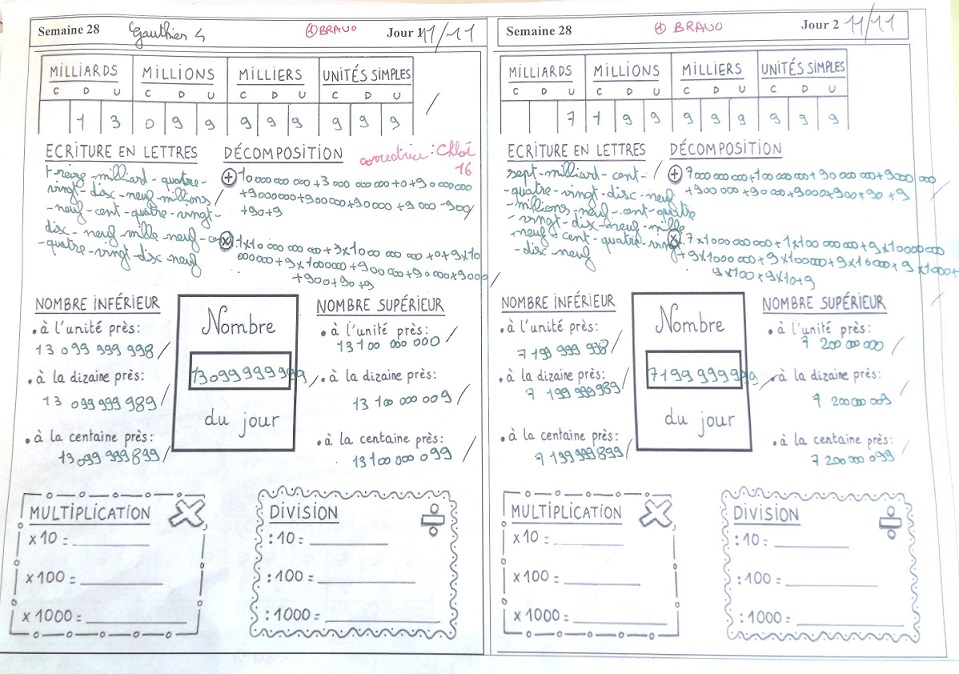 Semaine 28 Gauthier 4 BRAVO Jour 1 11/11
MILLIARDS MILLIONS MILLIERS UNITÉS SIMPLES
C D U C D U C D U C D U
1 3 0 9 9 9 9 9 9 9 9
ECRITURE EN LETTRES DÉCOMPOSITION correctrice : Chloé 16
treize-milliard-quatre-
vingt-disc-neuf-millions
-neuf-cent-quatre-vingt-
disc-neuf-mille-neuf-cent
-quatre-vingt-disc-neuf
+ 10 000 000 000 + 3 000 000 000 + 0 + 90 000 000
+ 90 + 9
× 1 x 10 000 000 000 + 3 x 1 000 000 000 + 0 + 9 x 10
+ 900 + 90 + 9
NOMBRE INFÉRIEUR
• à l'unité près:
13 099 999 998
• à la dizaine près:
13 099 999 989
• à la centaine près:
13 099 999 899
Nombre
13099999999
du jour
NOMBRE SUPÉRIEUR
• à l'unité près:
13 100 000 000
• à la dizaine près:
13 100 000 009
• à la centaine près:
13 100 000 099
MULTIPLICATION
x 10 =
x 100 =
x 1000 =
DIVISION
: 10 =
: 100 =
: 1000 =
Semaine 28 BRAVO Jour 2 11/11
MILLIARDS MILLIONS MILLIERS UNITÉS SIMPLES
C D U C D U C D U C D U
7 1 9 9 9 9 9 9 9 9
ECRITURE EN LETTRES DÉCOMPOSITION
sept-milliard-cent-
-quatre-vingt-disc-neuf
-millions-neuf-cent-quatre
-vingt-disc-neuf-mille
neuf-cent-quatre-vingt
-disc-neuf
+ 7000 000 000 + 100 000 000 + 90 000 000 + 9000 000
× 7 x 1000 000 000 + 1 x 100 000 000 + 9 x 10000000
9 x 100 + 9 x 10 + 9
NOMBRE INFÉRIEUR
• à l'unité près:
7 199 999 998
• à la dizaine près:
7 199 999 989
• à la centaine près:
7 199 999 899
Nombre
7199999999
du jour
NOMBRE SUPÉRIEUR
• à l'unité près:
7 200 000 000
• à la dizaine près:
7 200 000 009
• à la centaine près:
7 200 000 099
MULTIPLICATION
x 10 =
x 100 =
x 1000 =
DIVISION
: 10 =
: 100 =
: 1000 =